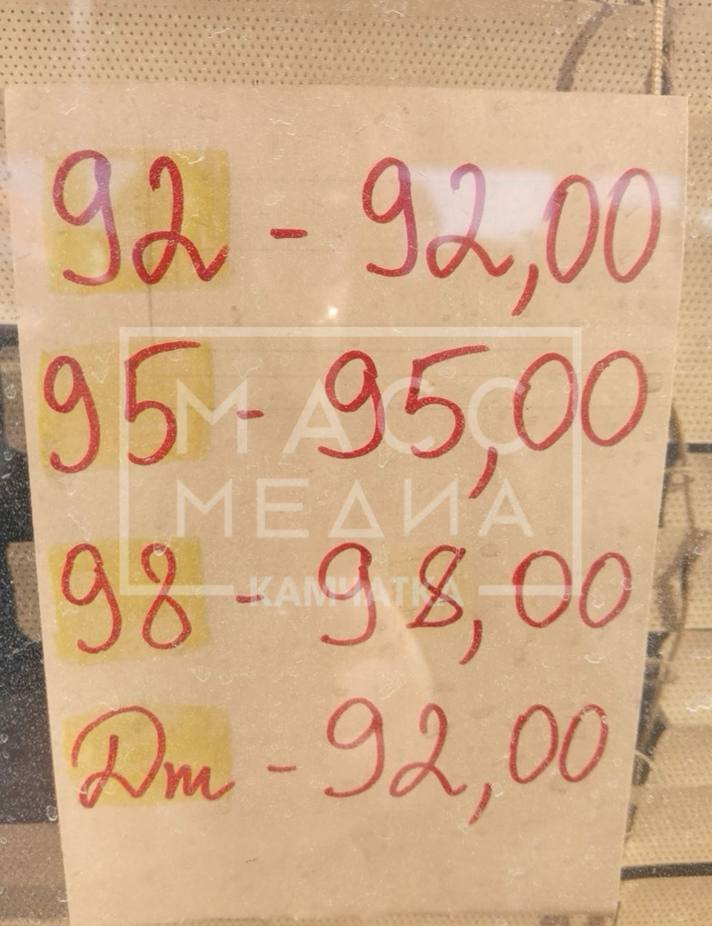 92 - 92,00
95 - 95,00
МАСС
МЕДИА
98 - 98,00
КАМЧАТКА
Дт - 92,00